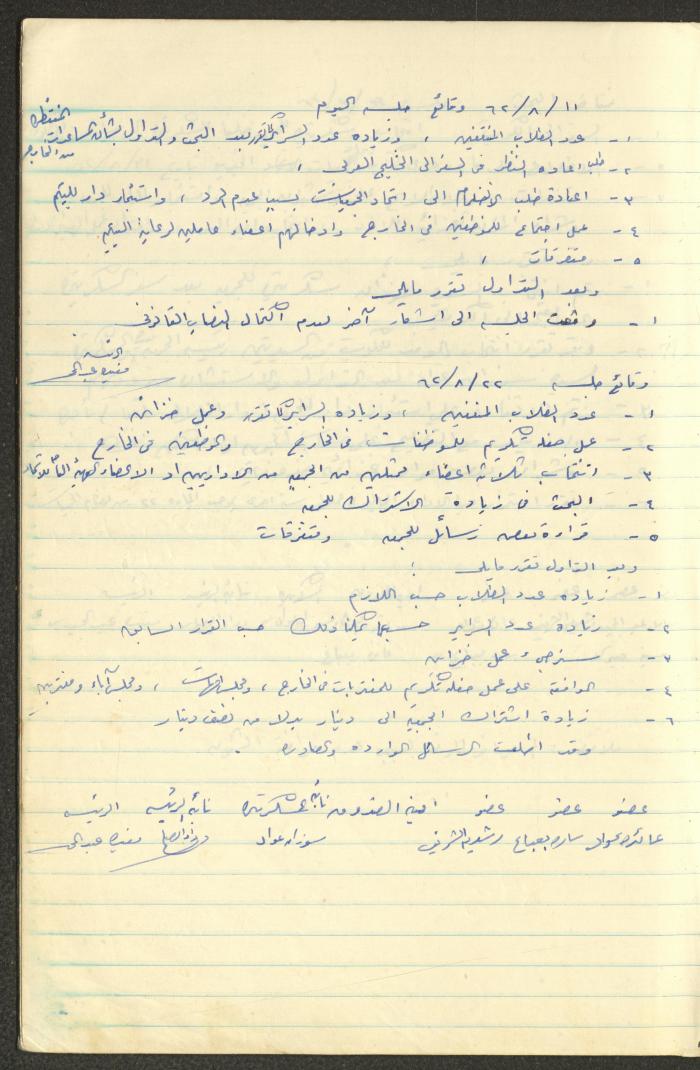 ٦٢/٨/١١ وقائع جلسة اليوم
المنتظرة
١- عدد الطلاب المنتفعين ، وزيادة عدد السراير بعد البحث والتداول بشأن المساعدات
من الخارج
٢- طلب اعادة النظر في السفر الى الخليج العربي ،
٣- اعادة طلب الى اتحاد الجمعيات بسبب عدم الرد ، واستئجار دار لليتيم
٤- عمل اجتماع للموظفين في الخارج وادخالهم اعضاء عاملين لرعاية اليتيم
٥- متفرقات ،
وبعد التداول تقرر مايلي
١- رفعت الجلسة الى اشعار آخر لعدم اكتمال النصاب القانوني
الرئيسة
وقائع جلسة ٦٢/٨/٢٢
١- عدد الطلاب المنتفعين ، وزيادة السراير وعمل خزائن
٢- عمل حفلة تكريم للموظفات في الخارج والموظفين في الخارج
٣- انتخاب ثلاثة اعضاء ممثلين من الجمعية من الاداريين او الاعضاء للهيئة
٤- البحث في زيادة الاشتراك للجمعية
٥- قراءة بعض رسائل للجمعية ومتفرقات
وبعد التداول تقرر مايلي :
١- زيادة عدد الطلاب حسب اللازم
٢- زيادة عدد السراير حسبما يمكننا ذلك حسب القرار السابق
٣- وعمل خزائن
٤- الموافقة على عمل حفلة تكريم للمغتربات في الخارج ، ومجلس امهات ، ومجلس آباء ومغتربين
٦- زيادة اشتراك الجمعية الى دينار بدلا من نصف دينار
وقد اطلعت الرسائل الواردة والصادرة .
عضو عضو عضو امينة الصندوق نائبة السكرتيرة نائبة الرئيسة الرئيسة
عائدة عواد سارة رشدية سوزان عواد